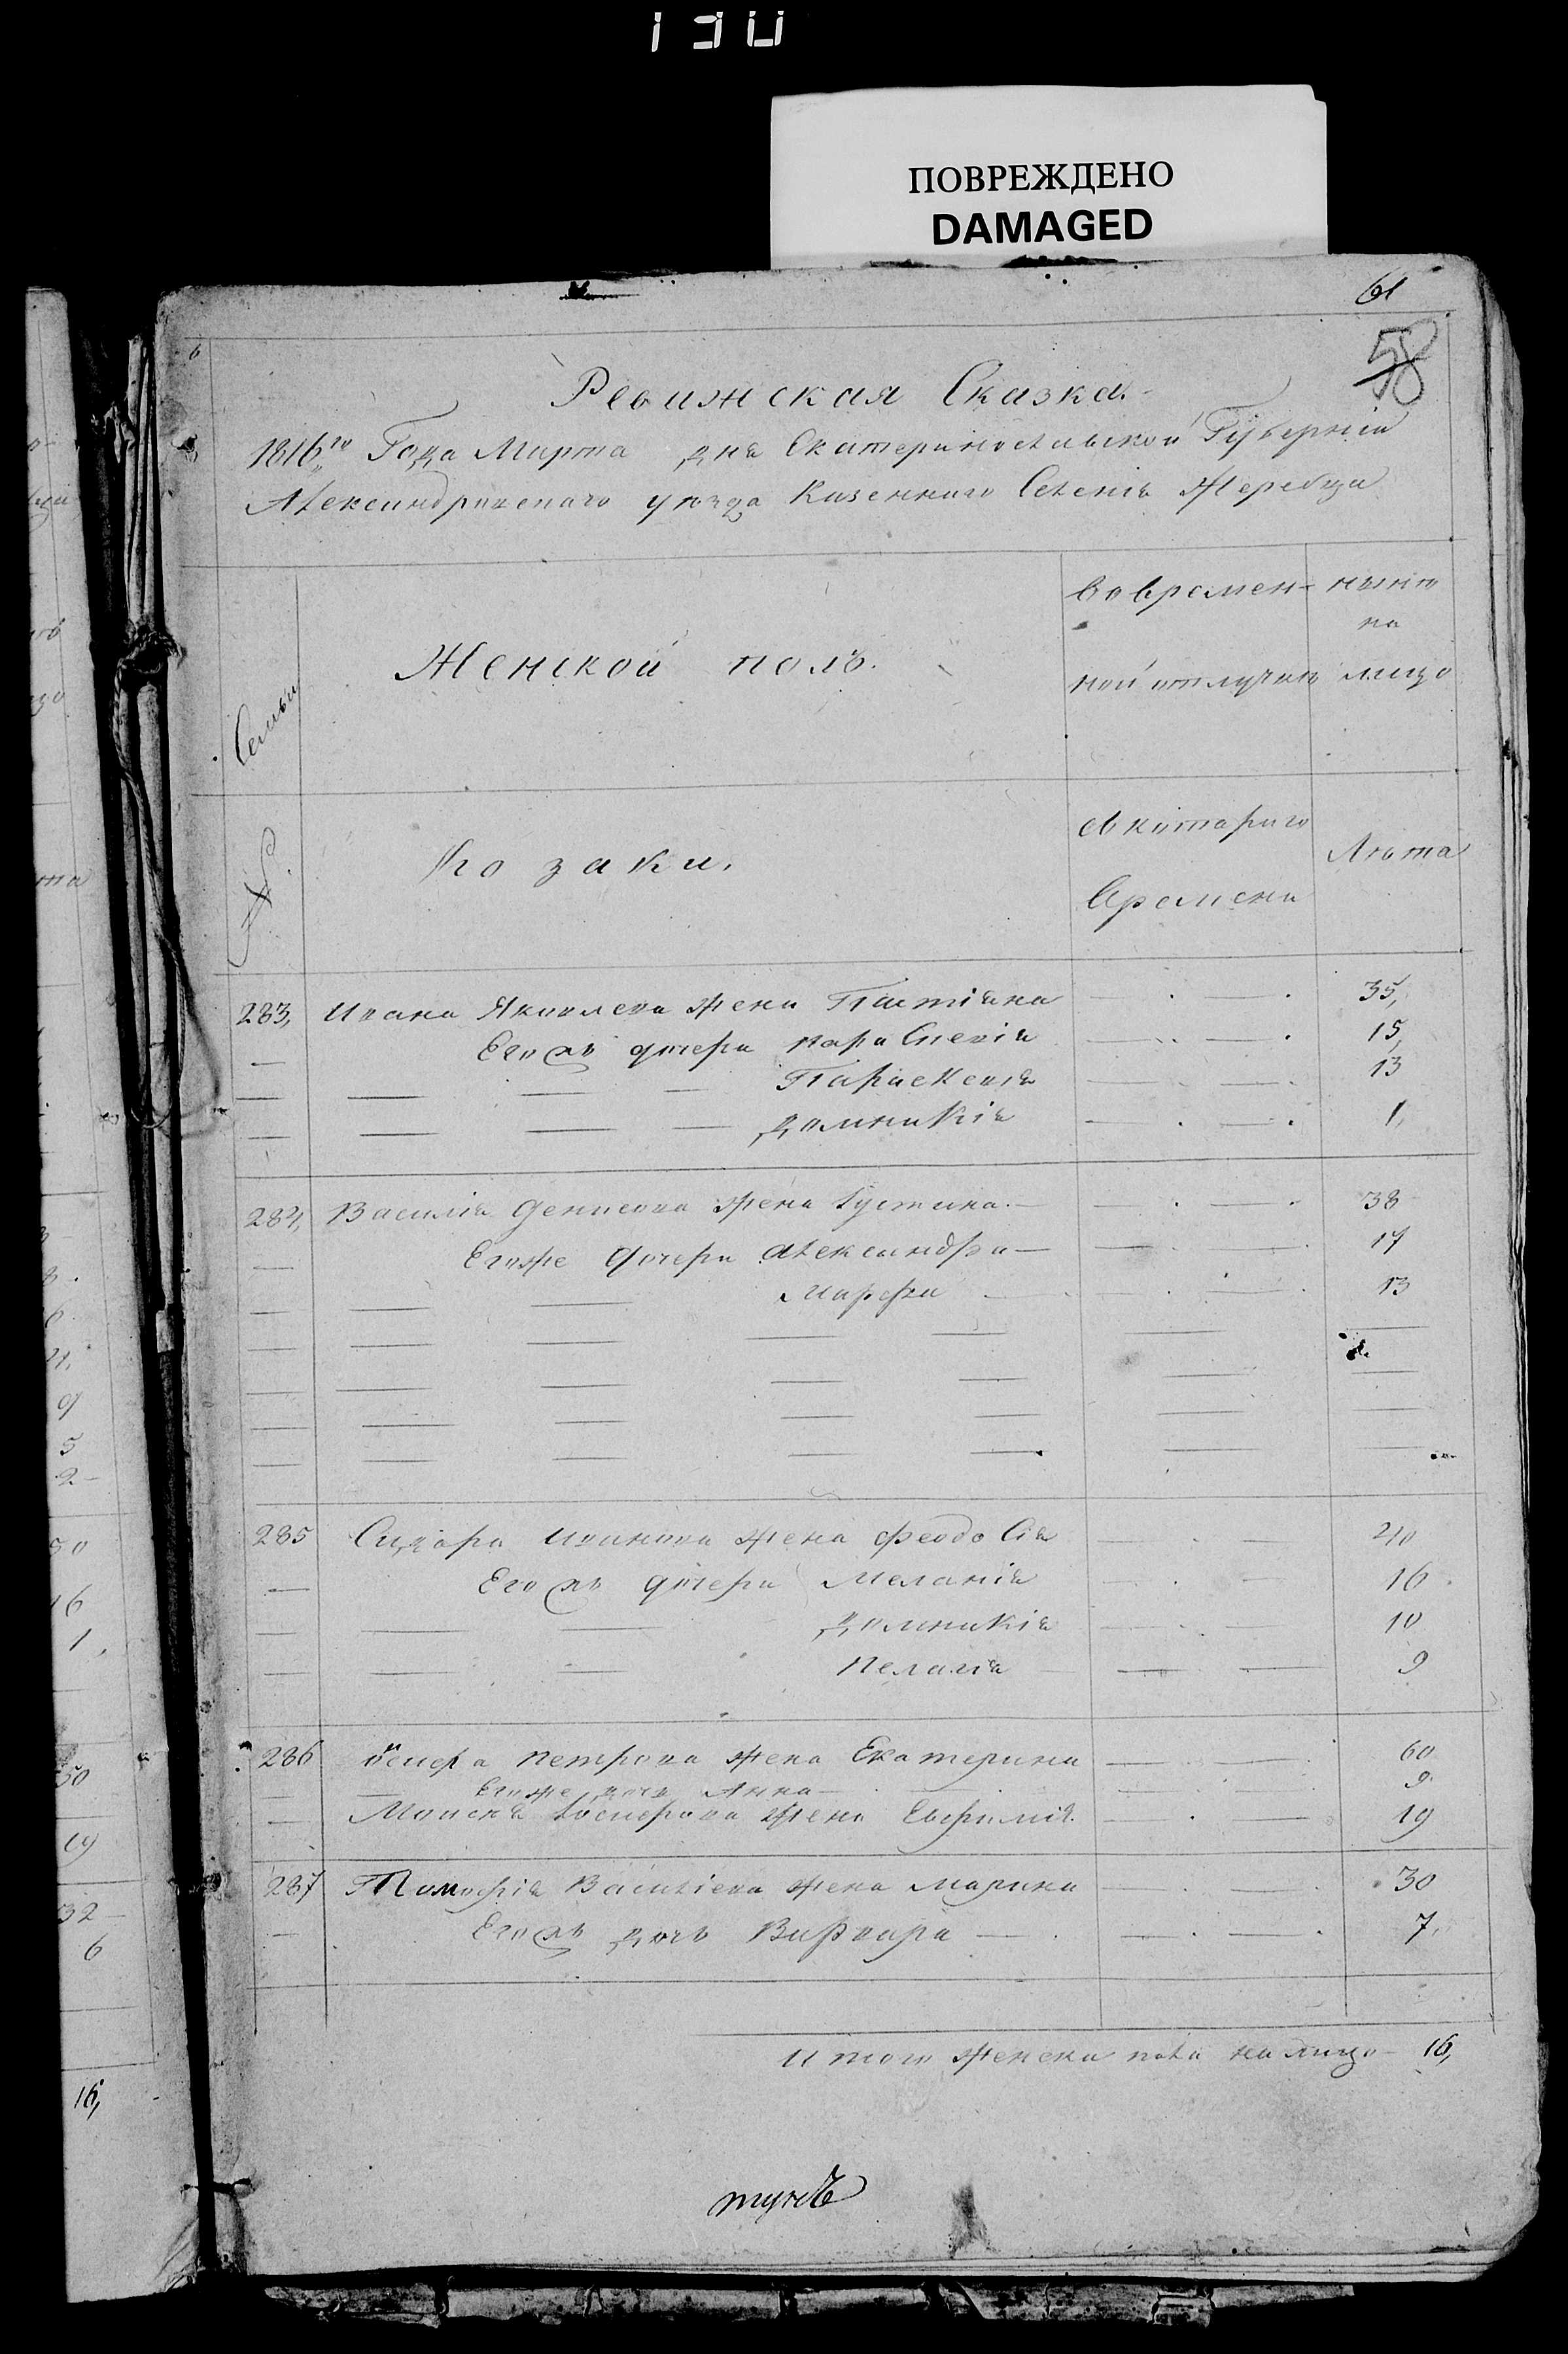 130
ПОВРЕЖДЕНО
DAMAGED
61
58
Ревижская Сказка
1816го Года Марта дня Екатеринославской Губернiи
Александровскаго уезда Казеннаго Селенiя Жеребца
Семьи
Женской полъ.
Вовремен-
ной отлучки
ныне
на
лицо
№.
Козаки.
съ котораго
Времени
Лѣта
283, Ивана Яковлева жена Татiана 35,
Егожъ дочери 15,
Параскевiя 13
Домникiя 1,
284, Василiя Денисова жена Густина 38
Егоже дочери Александра 17
Марфа 13
285 Сидора Иванова жена Феодосiя 40
Егожъ дочери Меланiя 16
Домникiя 10
Пелагiя 9
286 Петрова жена Екатерина 60
Егоже дочь Анна 9
Жена Евфимiя 19
287 Тимофiя Василiева жена Марина 30
Егожъ дочь Варвара 7,
Итого женска пола налицо 16,
9
5
2
50
16
1,
50
19
32
6
16,